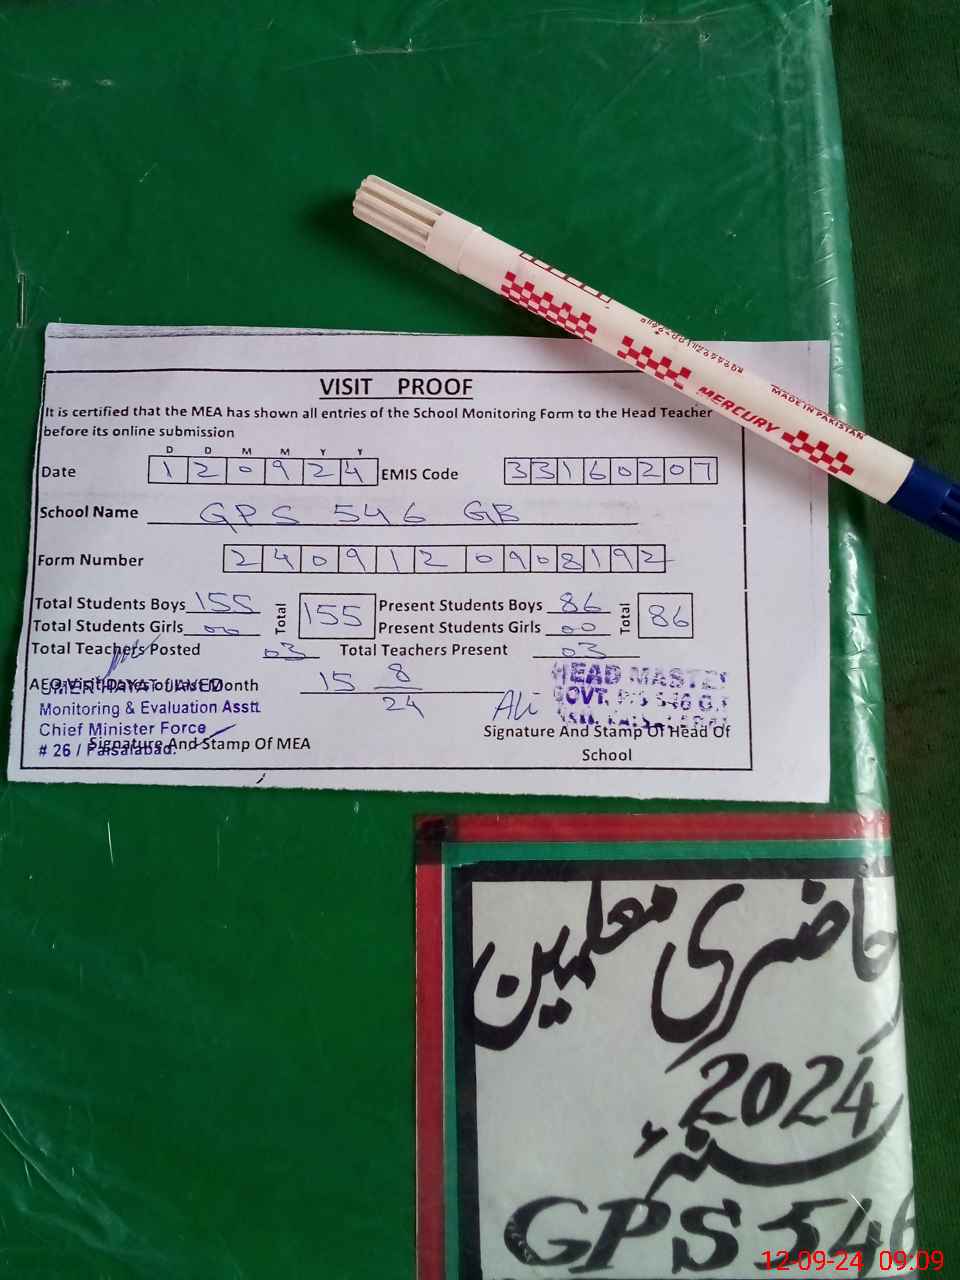 MERCURY
MADE IN PAKISTAN
VISIT PROOF
It is certified that the MEA has shown all entries of the School Monitoring Form to the Head Teacher
before its online submission
D D M M Y Y
Date 1 2 0 9 2 4 EMIS Code 3 3 1 6 0 2 0 7
School Name GPS 546 GB
Form Number 2 4 0 9 1 2 0 9 0 8 1 9 2
Total Students Boys 155 Total 155 Present Students Boys 86 Total 86
Total Students Girls 00 Present Students Girls 00
Total Teachers Posted 03 Total Teachers Present 03
AEO Visit Date of Last Month 15 8/24
UMER HAYAT JAVED
Monitoring & Evaluation Asstt.
Chief Minister Force
# 26 / Faisalabad.
Signature And Stamp Of MEA
Ali
HEAD MASTER
GOVT. P/S 546 G.B
Signature And Stamp Of Head Of
School
حاضری معلمین
2024
GPS 546
12-09-24 09:09